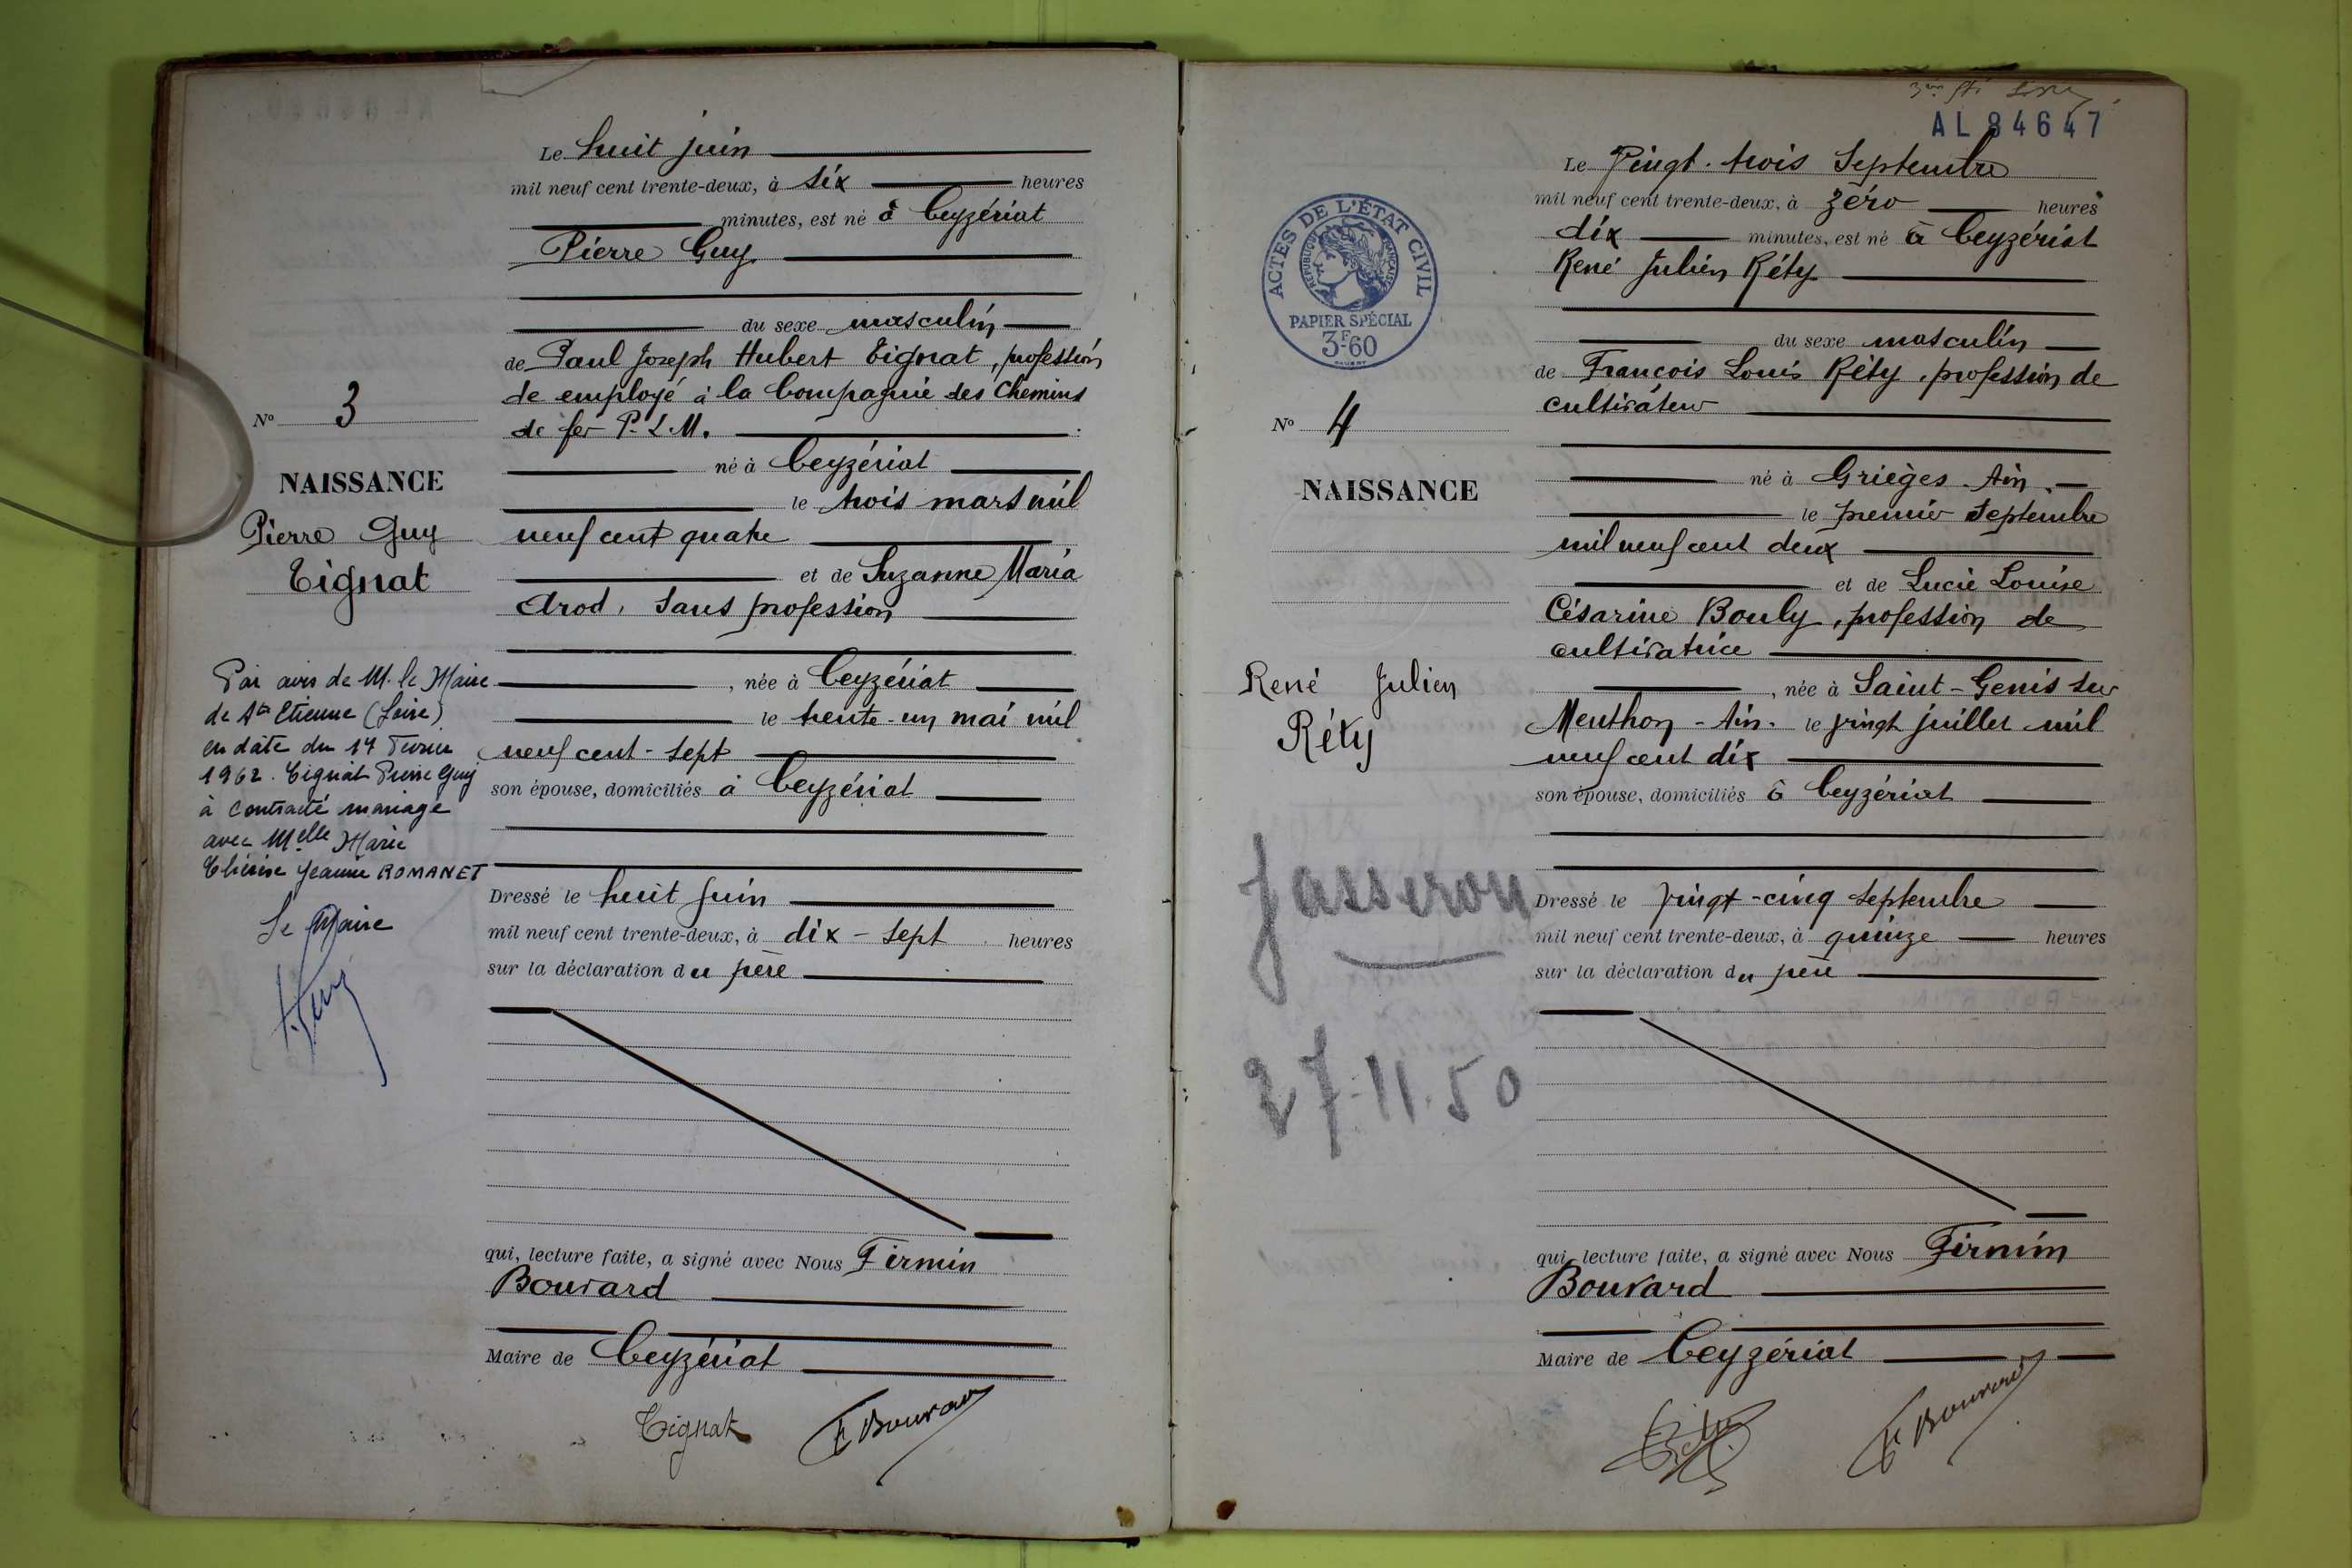 Le huit juin
mil neuf cent trente-deux, à six heures
minutes, est né à Ceyzériat
Pierre Guy
du sexe masculin
de Paul Joseph Hubert Tignat, profession
de employé à la Compagnie des Chemins
de fer P.L.M.
né à Ceyzériat
le trois mars mil
neuf cent quatre
et de Suzanne Maria
Arod, sans profession
, née à Ceyzériat
le trente-un mai mil
neuf cent-sept
son épouse, domiciliés à Ceyzériat
Dressé le huit juin
mil neuf cent trente-deux, à dix-sept heures
sur la déclaration du père
qui, lecture faite, a signé avec Nous Firmin
Bouvard
Maire de Ceyzériat
Tignat F Bouvard
No 3
NAISSANCE
Pierre Guy
Tignat
Par avis de M. le Maire
de St Etienne (Loire)
en date du 14 Février
1962. Tignat Pierre Guy
à contracté mariage
avec Melle Marie
Thérèse Jeanne ROMANET
Le Maire
AL84647
Le Vingt-trois Septembre
mil neuf cent trente-deux, à zéro heures
dix minutes, est né à Ceyzériat
René Julien Réty
du sexe masculin
de François Louis Réty, profession de
cultivateur
né à Grièges-Ain.
le premier Septembre
mil neuf cent deux
et de Lucie Louise
Césarine Bouly, profession de
cultivatrice
, née à Saint-Genis sur
Menthon-Ain. le vingt juillet mil
neuf cent dix
son épouse, domiciliés à Ceyzériat
Dressé le vingt-cinq septembre
mil neuf cent trente-deux, à quinze heures
sur la déclaration du père
qui, lecture faite, a signé avec Nous Firmin
Bouvard
Maire de Ceyzériat
F Bouvard
ACTES DE L'ÉTAT CIVIL
RÉPUBLIQUE FRANÇAISE
PAPIER SPÉCIAL
3F60
No 4
NAISSANCE
René Julien
Réty
Jasseron
27-11.50